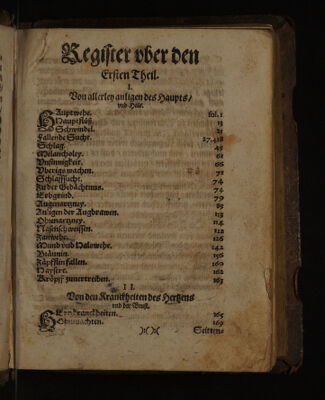 Register vber den
Ersten Theil.
I.
Von allerley anligen des Haupts/
vnd Hirn.
Hauptwehe. fol. 1
Hauptflüß. 13
Schwindel. 21
Fallende Sucht. 27.418
Schlag. 45
Melancholey. 62
Vnsinnigkeit. 66
Vberigs wachen. 72
Schlaffsucht. 74
Zu der Gedächtnus. 74
Erbgrind. 79
Augenartzney. 95
Anligen der Augbrawen. 113
Ohrenartzney. 114
Nasenschweissen. 122
Zanwehe. 126
Mund vnd Halßwehe. 142
Bräunin. 156
Zäpfflin fallen. 160
Heyserе. 162
Kröpff zuuertreiben. 163
II.
Von den Kranckheiten des Hertzens
vnd der Brust.
Hertzkranckheiten. 165
Ohnmachten. 169
Seitten-